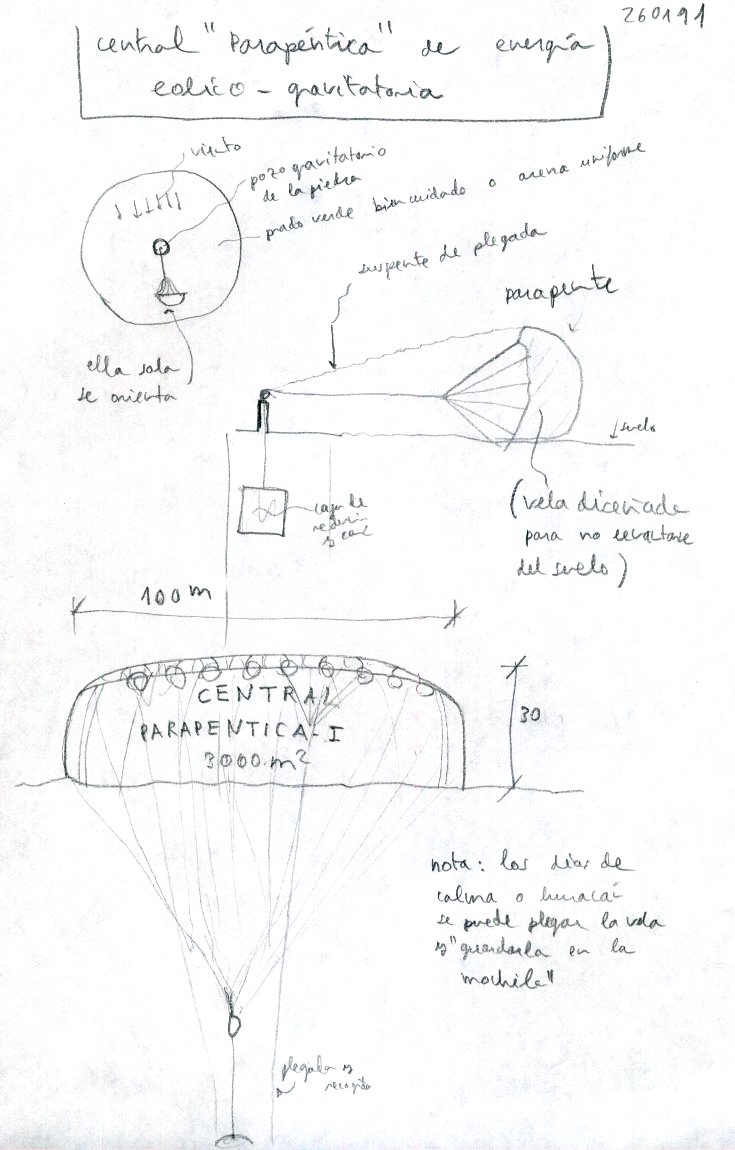 260191
central "Parapéntica" de energía
eolico - gravitatoria
viento
pozo gravitatorio
de la piedra
prado verde bien cuidado o arena uniforme
suspente de plegada
parapente
ella sola
se orienta
suelo
caja de
y
(vela diceñada
para no levantarse
del suelo)
100 m
CENTRAL
PARAPENTICA-I
3000 m²
30
nota: los dias de
calma o huracán
se puede plegar la vela
y "guardarla en la
mochila"
plegada y
recogida